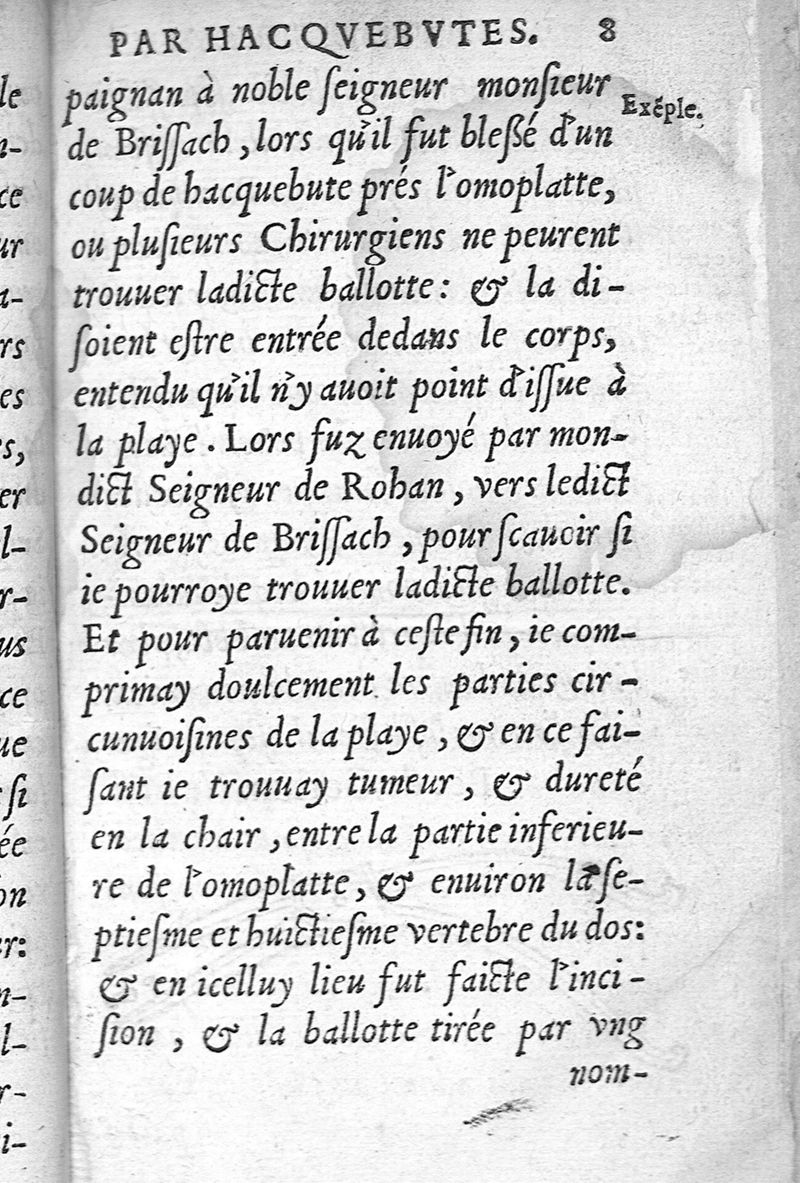 PAR HACQVEBVTES. 8
paignan à noble ſeigneur monſieur
Exẽple.
de Briſſach, lors qu'il fut bleßé d'un
coup de hacquebute prés l'omoplatte,
ou pluſieurs Chirurgiens ne peurent
trouuer ladicte ballotte: & la di-
ſoient eſtre entrée dedans le corps,
entendu qu'il n'y auoit point d'iſſue à
la playe. Lors fuz enuoyé par mon-
dict Seigneur de Rohan, vers ledict
Seigneur de Briſſach, pour ſcauoir ſi
ie pourroye trouuer ladicte ballotte.
Et pour paruenir à ceſte fin, ie com-
primay doulcement les parties cir-
cunuoiſines de la playe, & en ce fai-
ſant ie trouuay tumeur, & dureté
en la chair, entre la partie inferieu-
re de l'omoplatte, & enuiron la ſe-
ptieſme et huictieſme vertebre du dos:
& en icelluy lieu fut faicte l'inci-
ſion, & la ballotte tirée par vng
nom-
le
n-
ce
ur
a-
rs
es
s,
er
l-
r-
us
ce
ue
ſi
ée
on
er:
n-
l-
r-
i-